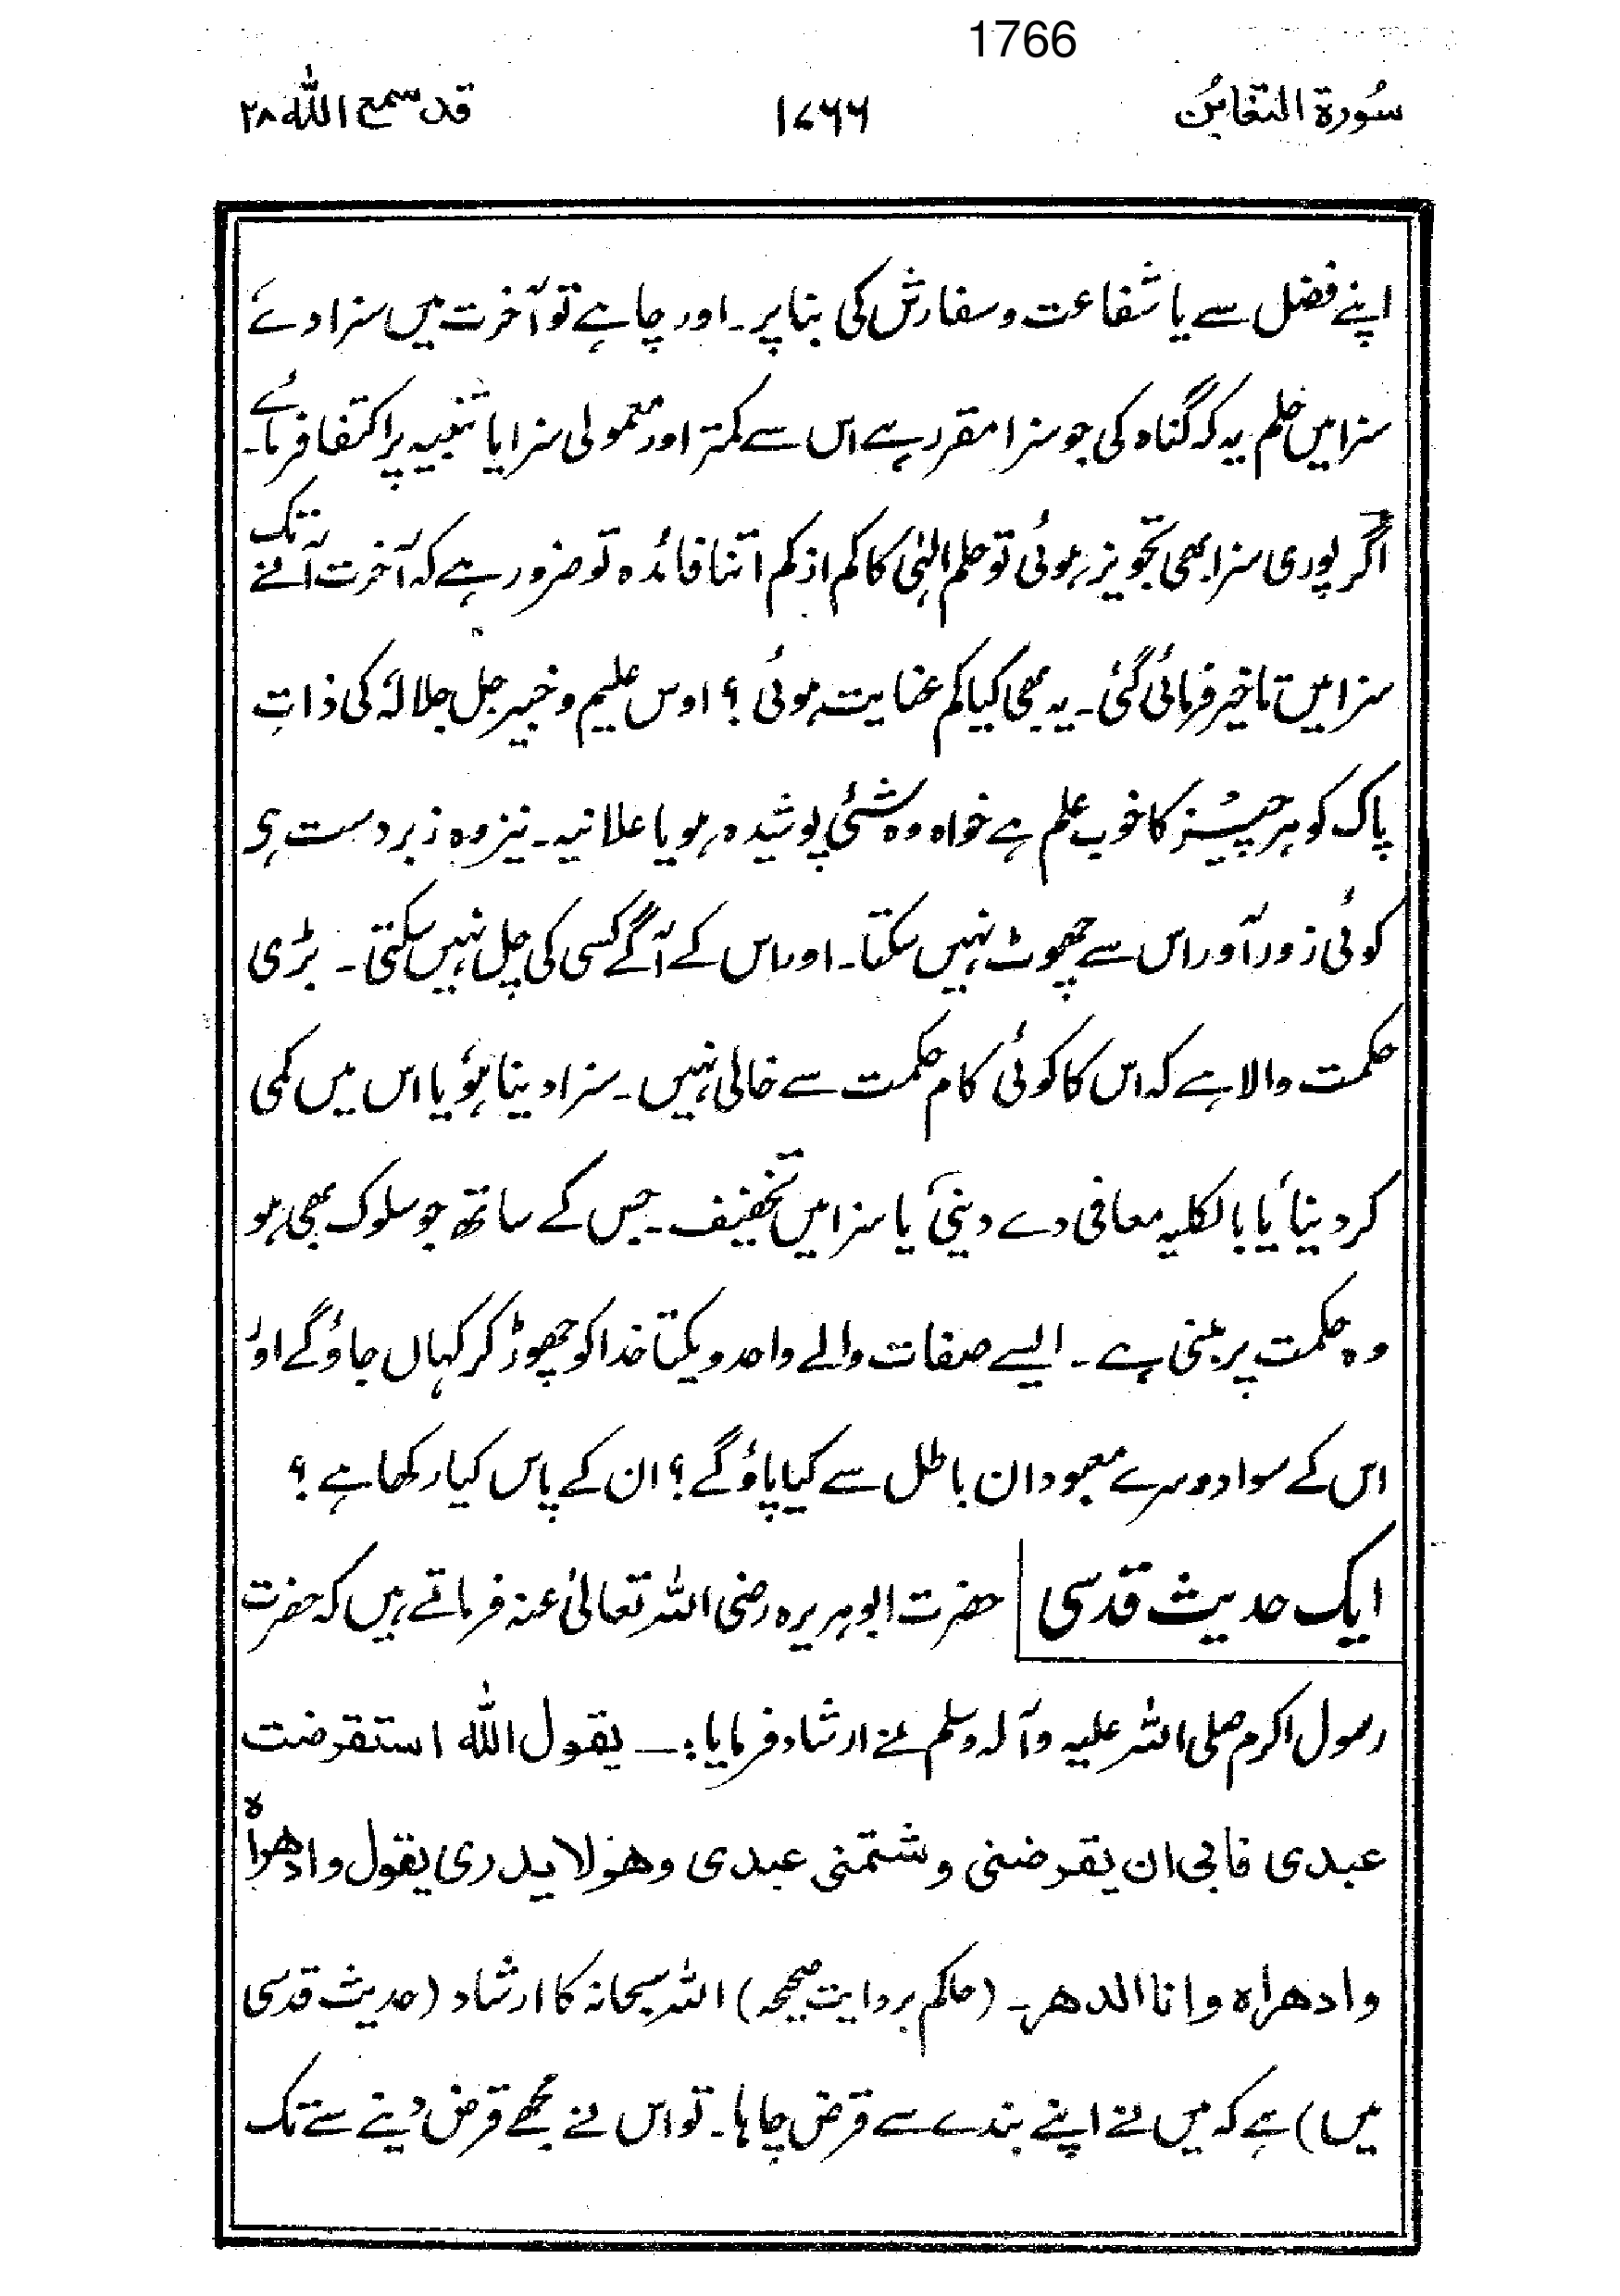 1766
سُورة التغابُن ۱۷۶۶ قد سمع اللہ ۲۸
اپنے فضل سے یا شفاعت و سفارش کی بنا پر۔ اور چاہے تو آخرت میں سزا دے
سزا میں حلم یہ کہ گناہ کی جو سزا مقرر ہے اس سے کمتر اور معمولی سزا یا تنبیہ پر اکتفا فرمائے۔
اگر پوری سزا بھی تجویز ہوئی تو حلم الٰہی کا کم از کم اتنا فائدہ تو ضرور ہے کہ آخرت آنے تک
سزا میں تاخیر فرمائی گئی۔ یہ بھی کیا کم عنایت ہوئی ؟ اوس علیم و خبیر جل جلالہٗ کی ذاتِ
پاک کو ہر چیز کا خوب علم ہے خواہ وہ شئی پوشیدہ ہو یا علانیہ۔ نیز وہ زبردست ہی
کوئی زور آور اس سے چھوٹ نہیں سکتا۔ اور اس کے آگے کسی کی چل نہیں سکتی۔ بڑی
حکمت والا ہے کہ اس کا کوئی کام حکمت سے خالی نہیں۔ سزا دینا ہو یا اس میں کمی
کر دینا یا بالکلیہ معافی دے دینی یا سزا میں تخفیف۔ جس کے ساتھ جو سلوک بھی ہو
وہ حکمت پر مبنی ہے۔ ایسے صفات والے واحد و یکتا خدا کو چھوڑ کر کہاں جاؤ گے اور
اس کے سوا دوسرے معبودان باطل سے کیا پاؤ گے ؟ ان کے پاس کیا رکھا ہے ؟
ایک حدیث قدسی حضرت ابو ہریرہ رضی اللہ تعالیٰ عنہ فرماتے ہیں کہ حضرت
رسول اکرم صلی اللہ علیہ وآلہ وسلم نے ارشاد فرمایا :۔ یقول اللہ استقرضت
عبدی فابی ان یقرضنی وشتمنی عبدی وھو لا یدری یقول وادھراہ
وادھراہ وانا الدھر۔ (حاکم بروایت صحیحہ) اللہ سبحانہ کا ارشاد (حدیث قدسی
میں) ہے کہ میں نے اپنے بندے سے قرض چاہا۔ تو اس نے مجھے قرض دینے سے تک